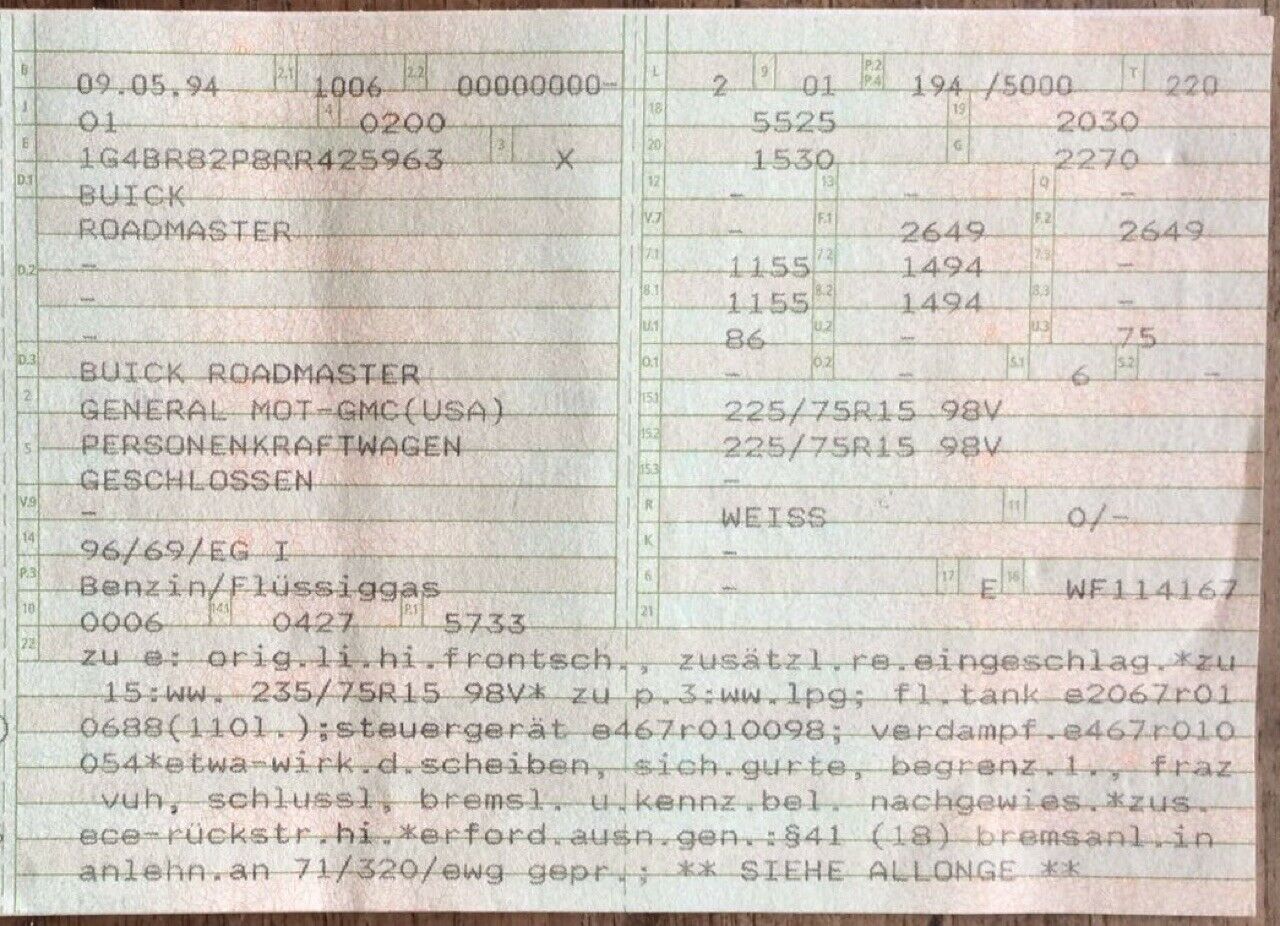 B 09.05.94 2.1 1006 2.2 00000000-
J 01 4 0200
E 1G4BR82P8RR425963 3 X
D.1 BUICK
ROADMASTER
D.2 -
-
-
D.3 BUICK ROADMASTER
2 GENERAL MOT-GMC(USA)
5 PERSONENKRAFTWAGEN
GESCHLOSSEN
V.9 -
14 96/69/EG I
P.3 Benzin/Flüssiggas
10 0006 14.1 0427 P.1 5733
L 2 9 01 P.2 P.4 194 /5000 T 220
18 5525 19 2030
20 1530 G 2270
12 - 13 - Q -
V.7 - F.1 2649 F.2 2649
7.1 1155 7.2 1494 7.3 -
8.1 1155 8.2 1494 8.3 -
U.1 86 U.2 - U.3 75
O.1 - O.2 - S.1 6 S.2 -
15.1 225/75R15 98V
15.2 225/75R15 98V
15.3 -
R WEISS 11 0/-
K -
6 - 17 E 16 WF114167
21
22 zu e: orig.li.hi.frontsch., zusätzl.re.eingeschlag.*zu
15:ww. 235/75R15 98V* zu p.3:ww.lpg; fl.tank e2067r01
0688(110l.);steuergerät e467r010098; verdampf.e467r010
054*etwa-wirk.d.scheiben, sich.gurte, begrenz.l., fraz
vuh, schlussl, bremsl. u.kennz.bel. nachgewies.*zus.
ece-rückstr.hi.*erford.ausn.gen.:§41 (18) bremsanl.in
anlehn.an 71/320/ewg gepr.; ** SIEHE ALLONGE **